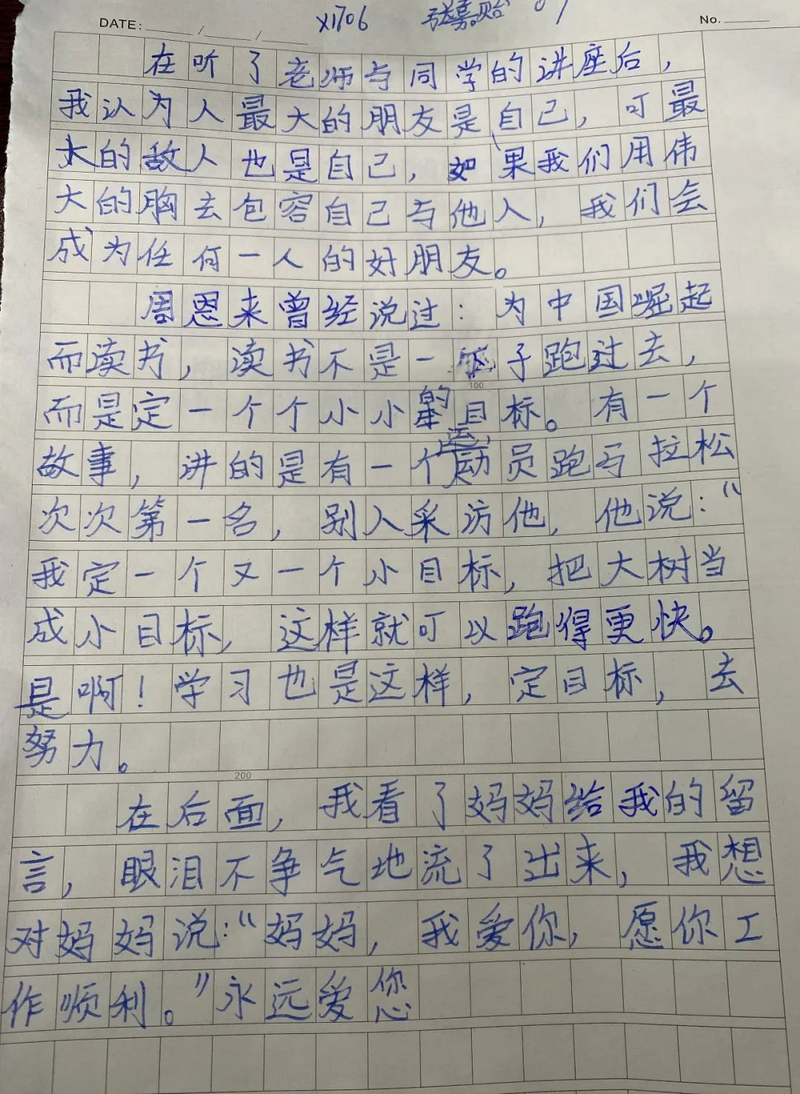 DATE: X1706 张嘉贻 07 No.
在听了老师与同学的讲座后，
我认为人最大的朋友是自己，可最
大的敌人也是自己，如果我们用伟
大的胸去包容自己与他人，我们会
成为任何一人的好朋友。
周恩来曾经说过：为中国崛起
而读书，读书不是一下子跑过去，
而是定一个个小小的目标。有一个
故事，讲的是有一个运动员跑马拉松
次次第一名，别人采访他，他说：“
我定一个又一个小目标，把大树当
成小目标，这样就可以跑得更快。
是啊！学习也是这样，定目标，去
努力。
100
200
在后面，我看了妈妈给我的留
言，眼泪不争气地流了出来，我想
对妈妈说：“妈妈，我爱你，愿你工
作顺利。”永远爱您